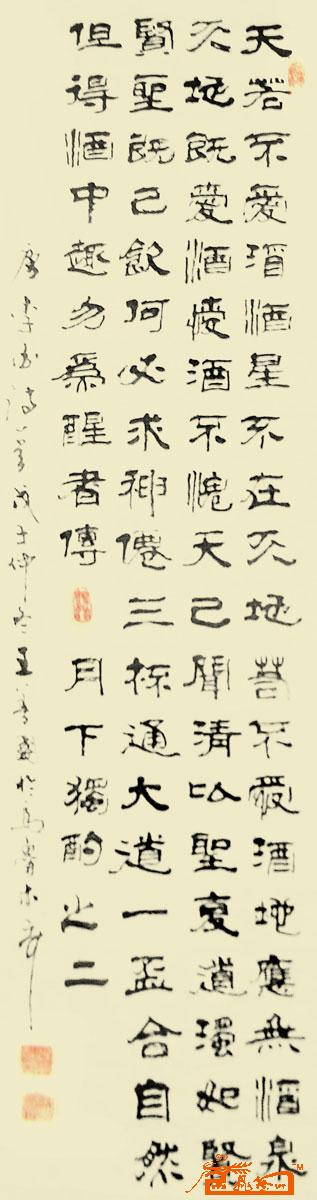 天若不愛酒酒星不在天地若不愛酒地應無酒泉
天地既愛酒愛酒不愧天已聞清比聖復道濁如賢
賢聖既已飲何必求神僊三杯通大道一盃合自然
但得酒中趣勿爲醒者傳 月下獨酌之二
唐李白詩一首戊子仲冬王於烏魯木齊